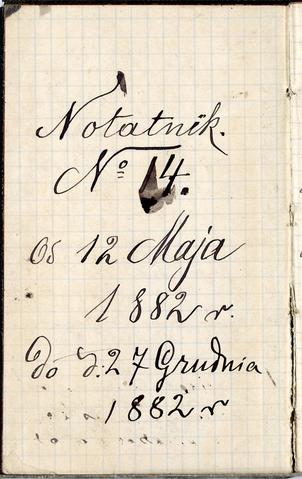 Notatnik.
Nº 14.
Od 12 Maja
1882 r.
Do d. 27 Grudnia
1882 r